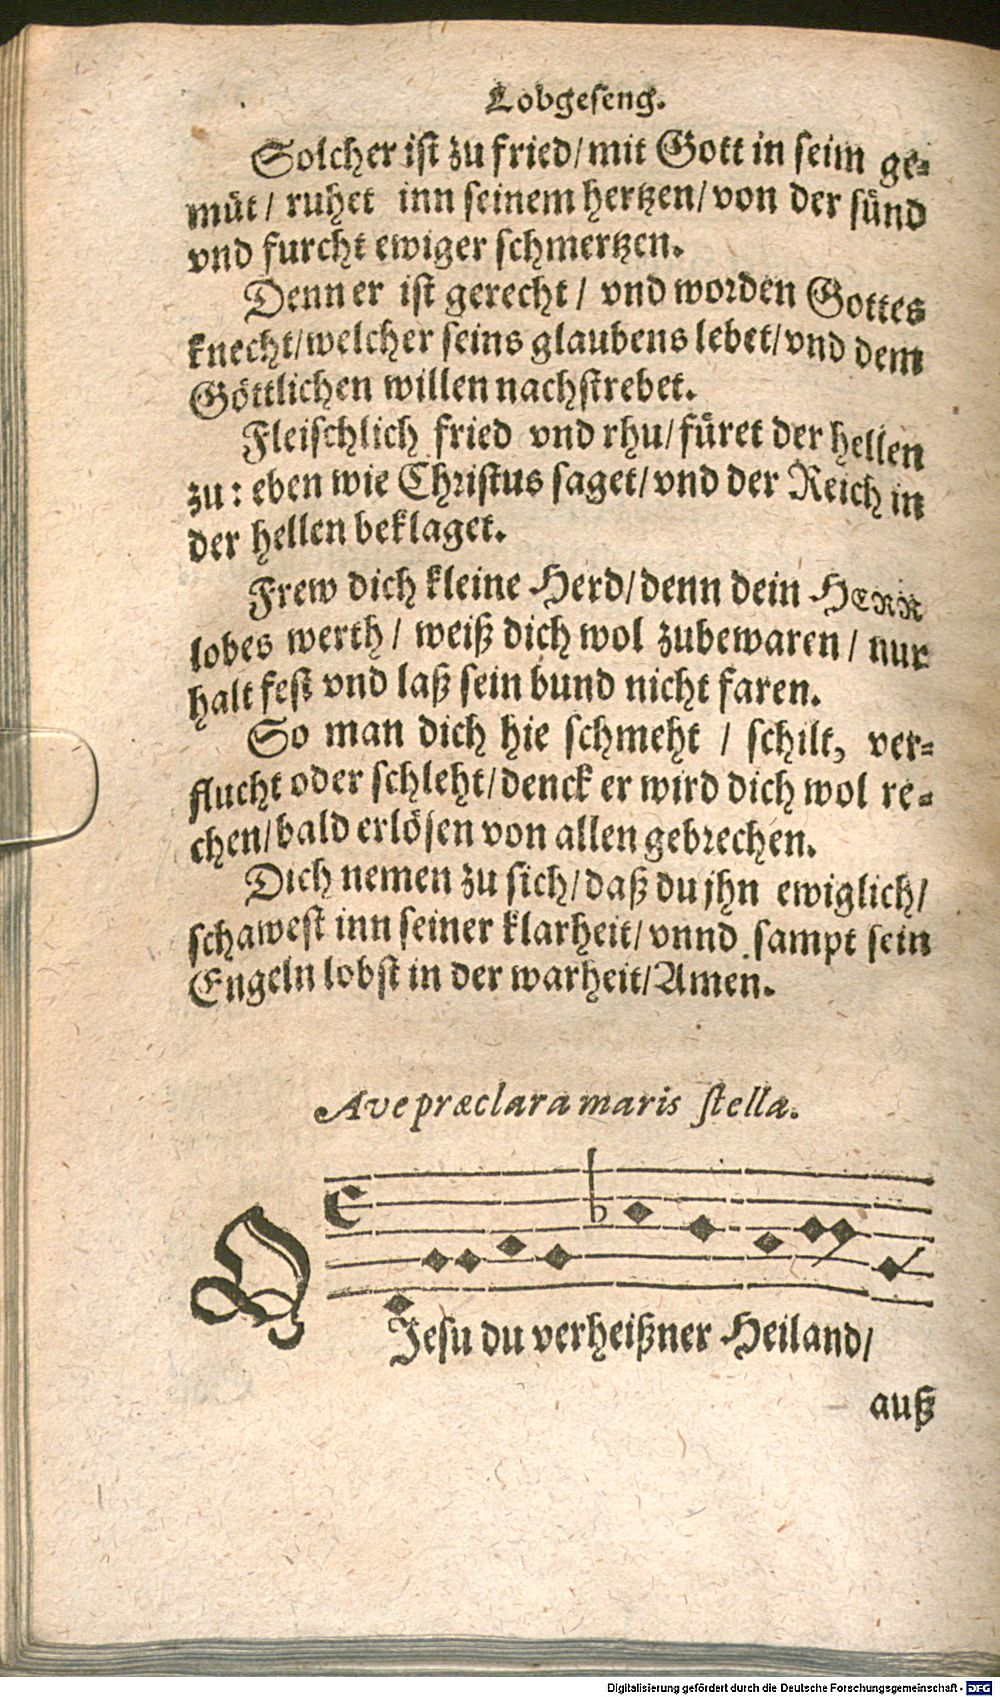 Lobgeseng.
Solcher ist zu fried/ mit Gott in seim ge=
müt/ ruhet inn seinem hertzen/ von der sünd
vnd furcht ewiger schmertzen.
Denn er ist gerecht/ vnd worden Gottes
knecht/ welcher seins glaubens lebet/ vnd dem
Göttlichen willen nachstrebet.
Fleischlich fried vnd rhu/ füret der hellen
zu: eben wie Christus saget/ vnd der Reich in
der hellen beklaget.
Frew dich kleine Herd/ denn dein HERR
lobes werth/ weiß dich wol zubewaren/ nur
halt fest vnd laß sein bund nicht faren.
So man dich hie schmeht/ schilt, ver=
flucht oder schleht/ denck er wird dich wol re=
chen/ bald erlösen von allen gebrechen.
Dich nemen zu sich/ daß du jhn ewiglich/
schawest inn seiner klarheit/ vnnd sampt sein
Engeln lobst in der warheit/ Amen.
Ave præclara maris stella.
O Jesu du verheißner Heiland/
auß
Digitalisierung gefördert durch die Deutsche Forschungsgemeinschaft - DFG